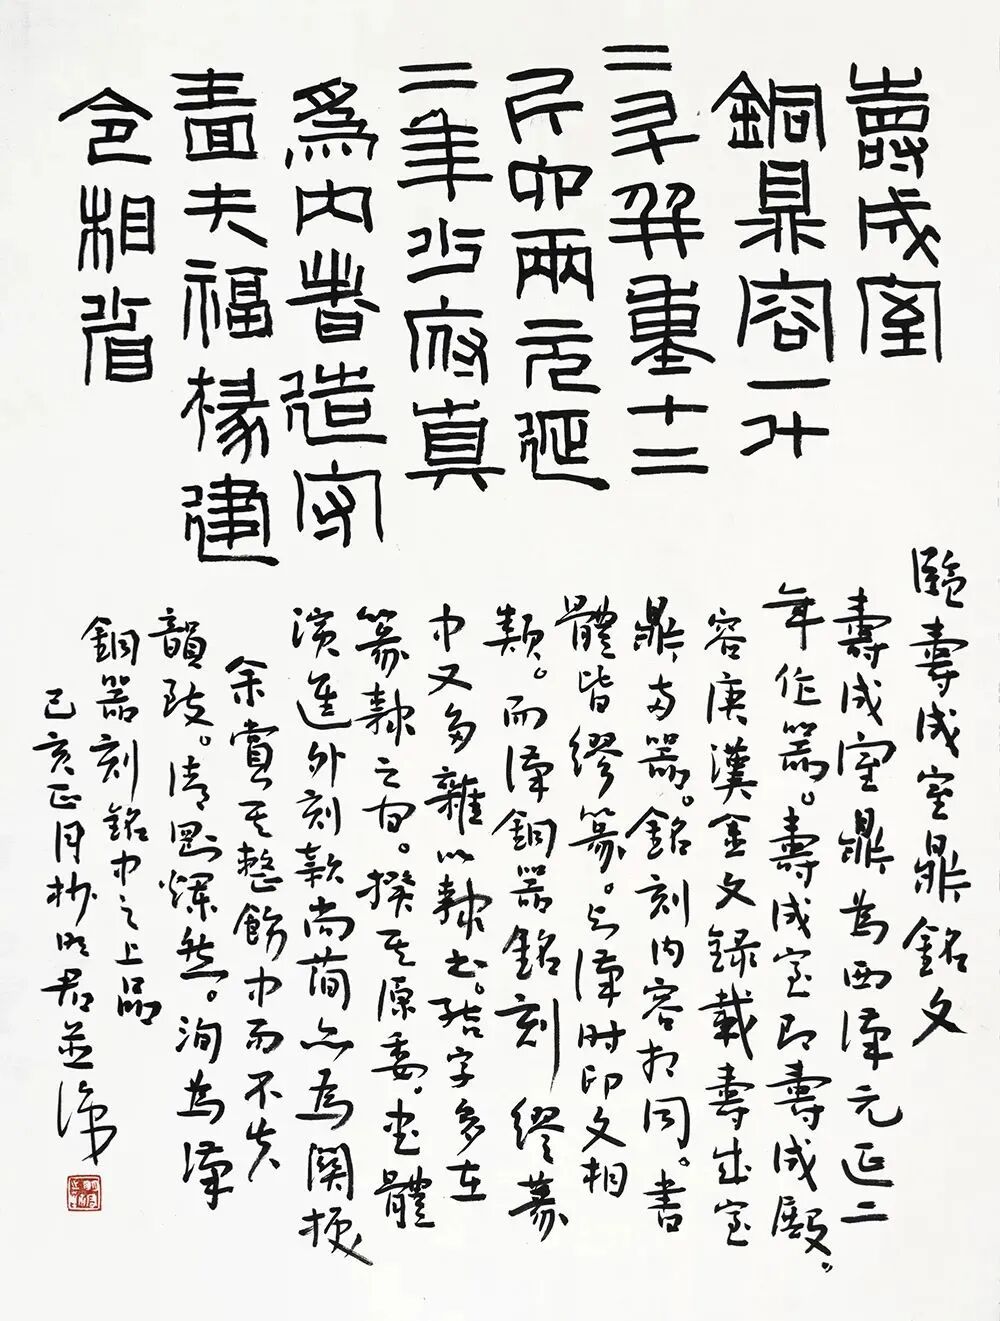 壽成室
銅鼎容一升
二斗斞重十二
斤卯兩元延
二年少府真
為內者造守
嗇夫福掾建
令相省
臨壽成室鼎銘文
壽成室鼎為西漢元延二
年作器。壽成室即壽成殿。
容庚漢金文録載壽成室
鼎為器。銘刻內容相同。書
體皆繆篆。與漢時印文相
類。而漢銅器銘刻繆篆
中又多雜以隸書。結字多在
篆隸之間。揆其原委。書體
演進外刻款尚簡亦為關梗
余賞其整飭中而不失
韻致。清剛爍然。洵為漢
銅器刻銘中之上品
己亥正月抄時君並識